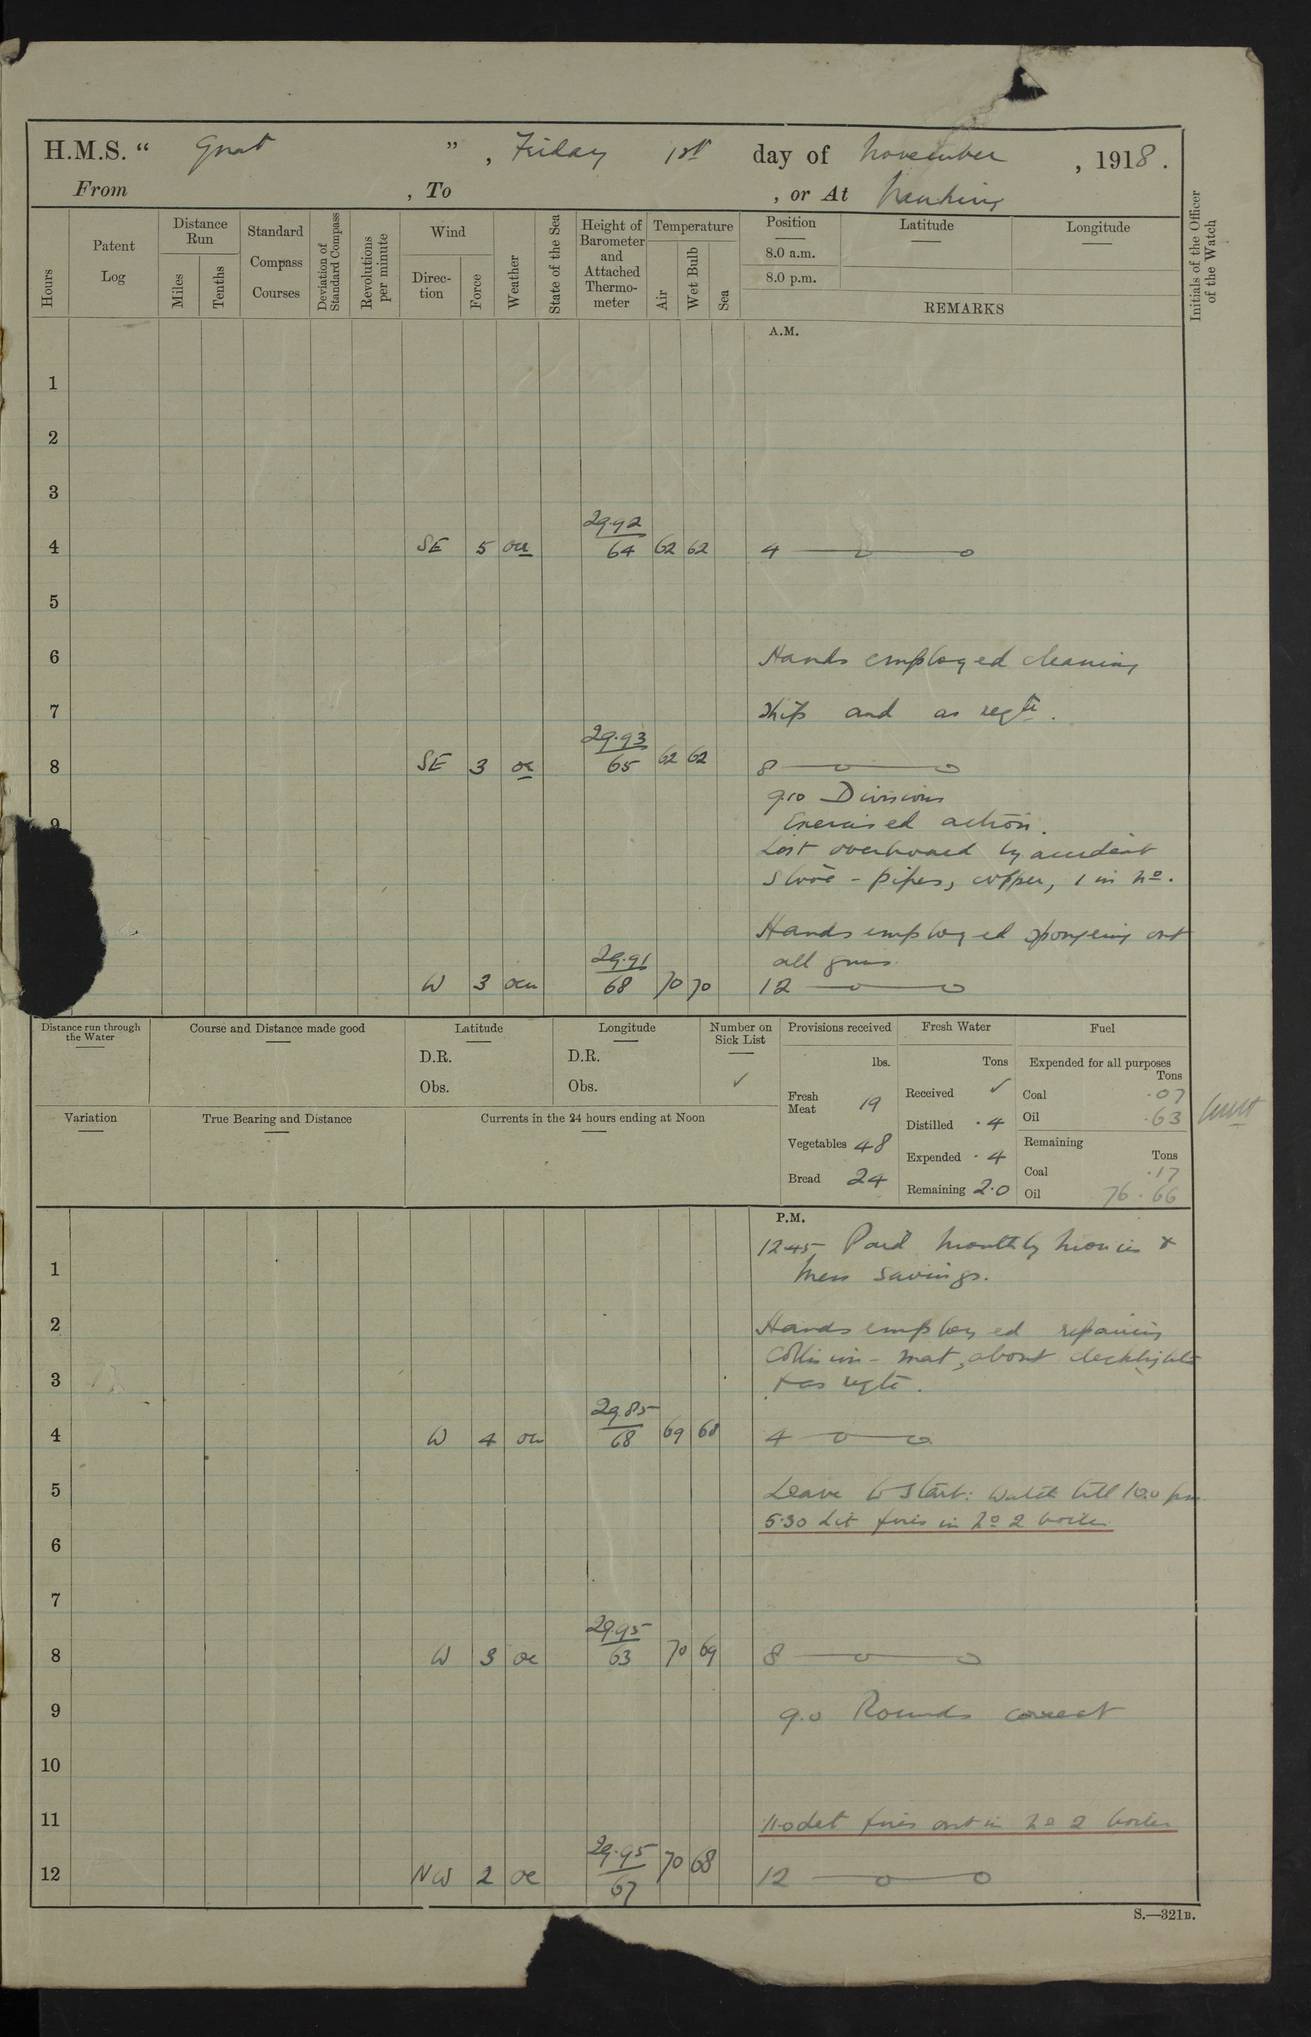 H.M.S. “ Gnat ” , Friday 1st day of November , 1918 .
From , To , or At Nanking
Hours
Patent Log
Distance Run
Miles
Tenths
Standard Compass Courses
Deviation of Standard Compass
Revolutions per minute
Wind
Direction
Force
Weather
State of the Sea
Height of Barometer and Attached Thermometer
Temperature
Air
Wet Bulb
Sea
Position
8.0 a.m.
8.0 p.m.
Latitude
Longitude
REMARKS
Initials of the Officer of the Watch
A.M.
1
2
3
29.92
4 SE 5 ou 64 62 62 4
5
6 Hands employed cleaning
7 ship and as reqte.
29.93
8 SE 3 oc 65 62 62 8
9.10 Divisions
9 Exercised action.
Lost overboard by accident
Stove - pipes, copper, 1 in no.
Hands employed spongeing out
all guns.
29.91
W 3 ocu 68 70 70 12
Distance run through the Water
Course and Distance made good
Latitude
D.R.
Obs.
Longitude
D.R.
Obs.
Number on Sick List
✓
Provisions received
lbs.
Fresh Meat 19
Vegetables 48
Bread 24
Fresh Water
Tons
Received ✓
Distilled .4
Expended .4
Remaining 2.0
Fuel
Expended for all purposes
Tons
Coal .07
Oil .63
Remaining
Tons
Coal .17
Oil 76.66
Variation
True Bearing and Distance
Currents in the 24 hours ending at Noon
P.M.
12.45 Paid monthly monies &
1 Mess savings.
2 Hands employed repairing
collision-mat, about decklights
3 & as reqte.
29.85
4 W 4 ou 68 69 68 4
5 Leave to Starb: Watch till 10.0 pm
5.30 Lit fires in No 2 boiler
6
7
29.95
8 W 3 oc 63 70 69 8
9 9.0 Rounds correct
10
11 11.0 Let fires out in No 2 boiler
29.95
12 NW 2 oc 67 70 68 12
S.—321B.